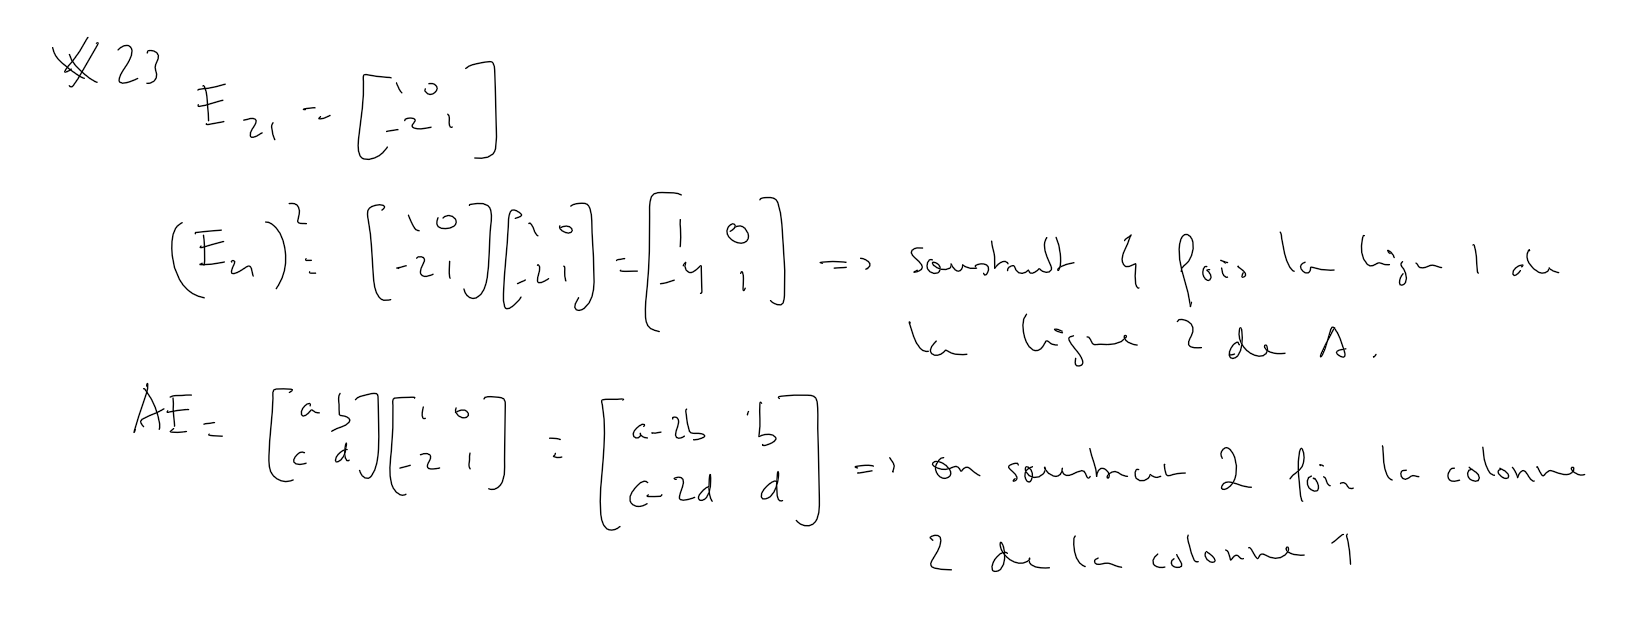 * 23
E₂₁ = [1 0; -2 1]
(E₂₁)² = [1 0; -2 1][1 0; -2 1] = [1 0; -4 1] => soustrait 4 fois la ligne 1 de
la ligne 2 de A.
AE = [a b; c d][1 0; -2 1] = [a-2b b; c-2d d] => on soustrait 2 fois la colonne
2 de la colonne 1